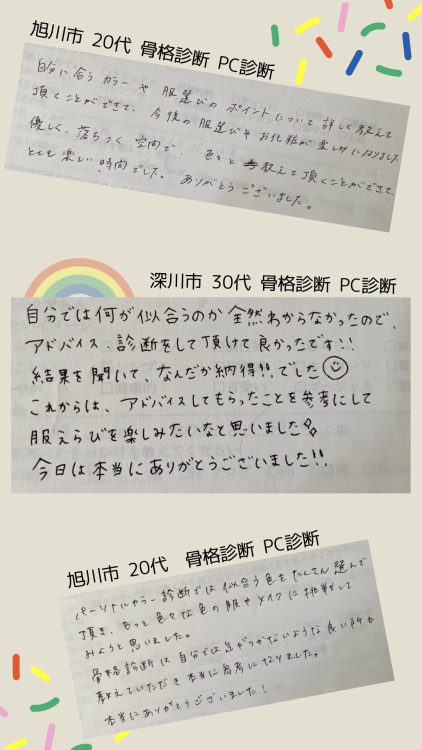 旭川市 20代 骨格診断 PC診断
自分に合うカラーや服選びのポイントについて詳しく教えて
頂くことができて、今後の服選びやお化粧が楽しみになりました
優しく、落ちつく空間で、色々と教えて頂くことができて
とても楽しい時間でした。ありがとうございました。
深川市 30代 骨格診断 PC診断
自分では何が似合うのか全然わからなかったので、
アドバイス、診断をして頂けて良かったです!!
結果を聞いて、なんだか納得!!でした
これからは、アドバイスしてもらったことを参考にして
服えらびを楽しみたいなと思いました
今日は本当にありがとうございました!!
旭川市 20代 骨格診断 PC診断
パーソナルカラー診断では似合う色をたくさん選んで
頂き、もっと色々な色の服やメイクに挑戦して
みようと思いました。
骨格診断は自分では気がつかないような良い所も
教えていただき本当に参考になりました。
本当にありがとうございました!